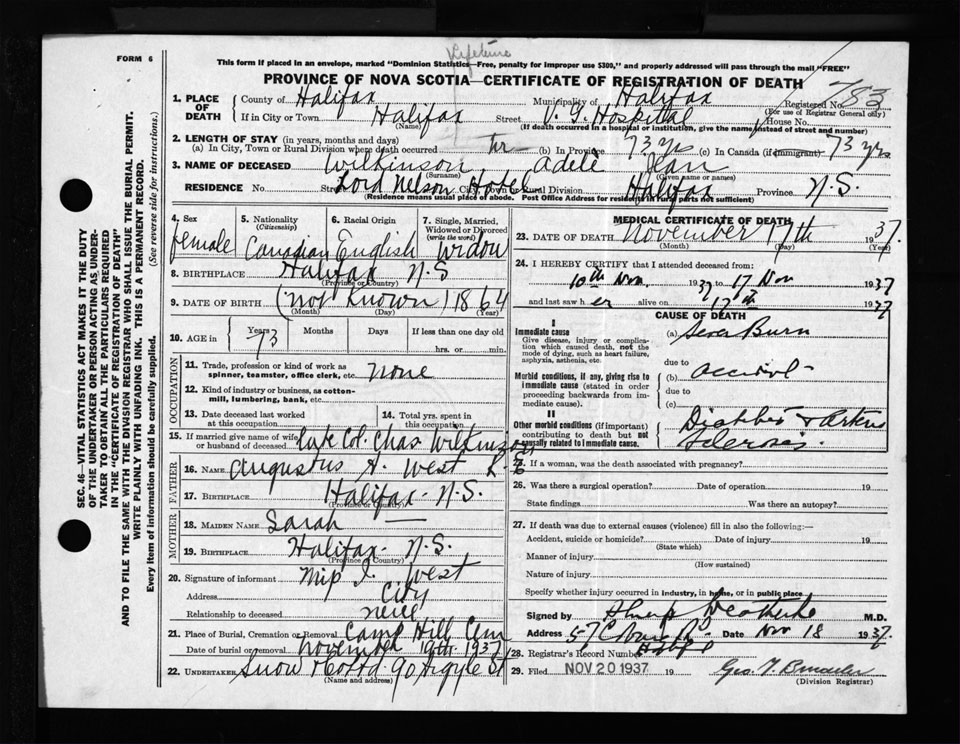 Lifetime
FORM 6
This form if placed in an envelope, marked "Dominion Statistics—Free, penalty for improper use $300," and properly addressed will pass through the mail "FREE"
PROVINCE OF NOVA SCOTIA—CERTIFICATE OF REGISTRATION OF DEATH
1. PLACE OF DEATH
County of Halifax Municipality of Halifax Registered No. 783
(For use of Registrar General only)
If in City or Town Halifax Street V. G. Hospital House No.
(Name) (If death occurred in a hospital or institution, give the name instead of street and number)
2. LENGTH OF STAY (in years, months and days)
(a) In City, Town or Rural Division where death occurred (b) In Province 73 yrs (c) In Canada (if immigrant) 73 yrs
3. NAME OF DECEASED Wilkinson Adele Jean
(Surname) (Given name or names)
RESIDENCE No. Street Lord Nelson Hotel City, Town or Rural Division Halifax Province N.S.
(Residence means usual place of abode. Post Office Address for residents in rural parts not sufficient)
4. Sex female
5. Nationality (Citizenship) Canadian
6. Racial Origin English
7. Single, Married, Widowed or Divorced (write the word) Widow
8. BIRTHPLACE Halifax N.S
(Province or Country)
9. DATE OF BIRTH (not known) 1864
(Month) (Day)
10. AGE in Years 73 Months Days If less than one day old
hrs. or min.
OCCUPATION
11. Trade, profession or kind of work as spinner, teamster, office clerk, etc. none
12. Kind of industry or business, as cotton-mill, lumbering, bank, etc.
13. Date deceased last worked at this occupation
14. Total yrs. spent in this occupation
15. If married give name of wife or husband of deceased Late Col. Chas Wilkinson
FATHER
16. NAME Augustus A. West
17. BIRTHPLACE Halifax - N.S.
(Province or Country)
MOTHER
18. MAIDEN NAME Sarah —
19. BIRTHPLACE Halifax - N.S.
(Province or Country)
20. Signature of informant West
Address City
Relationship to deceased
21. Place of Burial, Cremation or Removal Camp Hill Cem
Date of burial or removal November 19th 1937
22. UNDERTAKER Snow & Co Ltd. 90 Argyle St
(Name and address)
MEDICAL CERTIFICATE OF DEATH
23. DATE OF DEATH November 17th 1937
(Month) (Day) (Year)
24. I HEREBY CERTIFY that I attended deceased from
10th Nov. 1937 to 17 Nov 1937
and last saw her alive on 17th 1937
CAUSE OF DEATH
I
Immediate cause
Give disease, injury or complication which caused death, not the mode of dying, such as heart failure, asphyxia, asthenia, etc.
(a) Burn
due to
Morbid conditions, if any, giving rise to immediate cause (stated in order proceeding backwards from immediate cause).
(b)
due to
(c)
II
Other morbid conditions (if important) contributing to death but not causally related to immediate cause.
25. If a woman, was the death associated with pregnancy?
26. Was there a surgical operation? Date of operation 19
State findings Was there an autopsy?
27. If death was due to external causes (violence) fill in also the following:—
Accident, suicide or homicide? Date of injury 19
(State which)
Manner of injury
(How sustained)
Nature of injury
Specify whether injury occurred in industry, in home, or in public place
Signed by M.D.
Address Date Nov 18 1937
28. Registrar's Record Number
29. Filed NOV 20 1937 Geo.
(Division Registrar)
SEC. 46—VITAL STATISTICS ACT MAKES IT THE DUTY
OF THE UNDERTAKER OR PERSON ACTING AS UNDER-
TAKER TO OBTAIN ALL THE PARTICULARS REQUIRED
IN THE "CERTIFICATE OF REGISTRATION OF DEATH"
AND TO FILE THE SAME WITH THE DIVISION REGISTRAR WHO SHALL ISSUE THE BURIAL PERMIT.
WRITE PLAINLY WITH UNFADING INK. THIS IS A PERMANENT RECORD.
Every item of information should be carefully supplied. (See reverse side for instructions.)